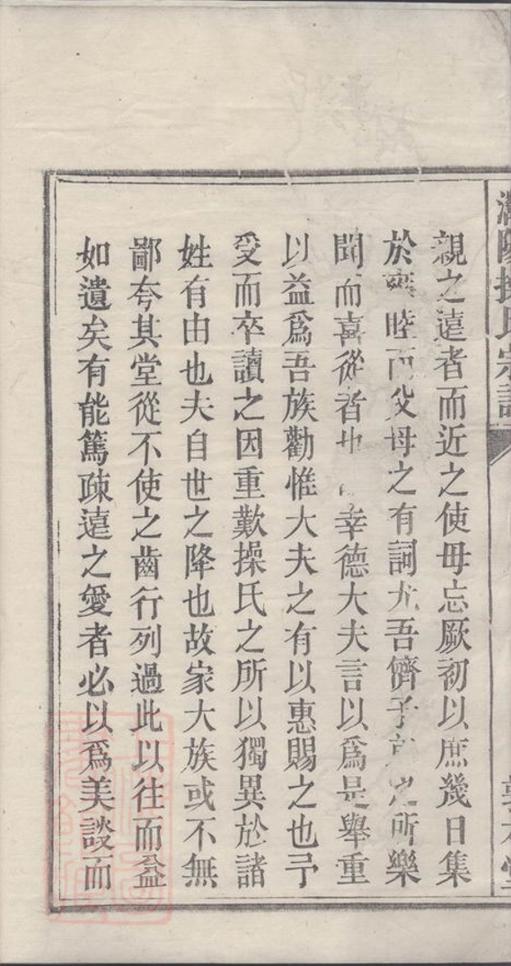 操氏宗譜
親之遠者而近之使毋忘厥初以庶幾日集
於雍睦而父母之有詞尤吾儕子之所樂
聞而喜從者也幸德大夫言以爲是舉重
以益爲吾族勸惟大夫之有以惠賜之也予
受而卒讀之因重歎操氏之所以獨異於諸
姓有由也夫自世之降也故家大族或不無
鄙夸其堂從不使之齒行列過此以往而益
如遺矣有能篤疎遠之愛者必以爲美談而